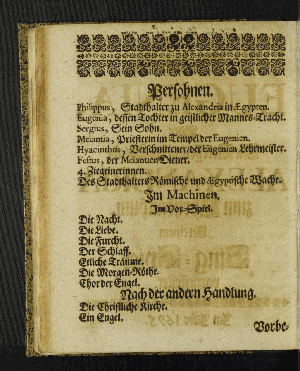 Persohnen.
Philippus, Stadthalter zu Alexandria in Ægypten.
Eugenia, dessen Tochter in geistlicher Mannes-Tracht.
Sergius, Sein Sohn.
Melantia, Priesterin im Tempel der Eugenien.
Hyacinthus, Verschnittener/ der Eugenien Lehrmeister.
Festus, der Melantien Diener.
4. Ziegeinerinnen.
Des Stadthalters Römische und Ægyptische Wache.
Im Machinen.
Im Vor-Spiel.
Die Nacht.
Die Liebe.
Die Furcht.
Der Schlaff.
Etliche Träume.
Die Morgen-Röthe.
Chor der Engel.
Nach der andern Handlung.
Die Christliche Kirche.
Ein Engel.
Vorbe-